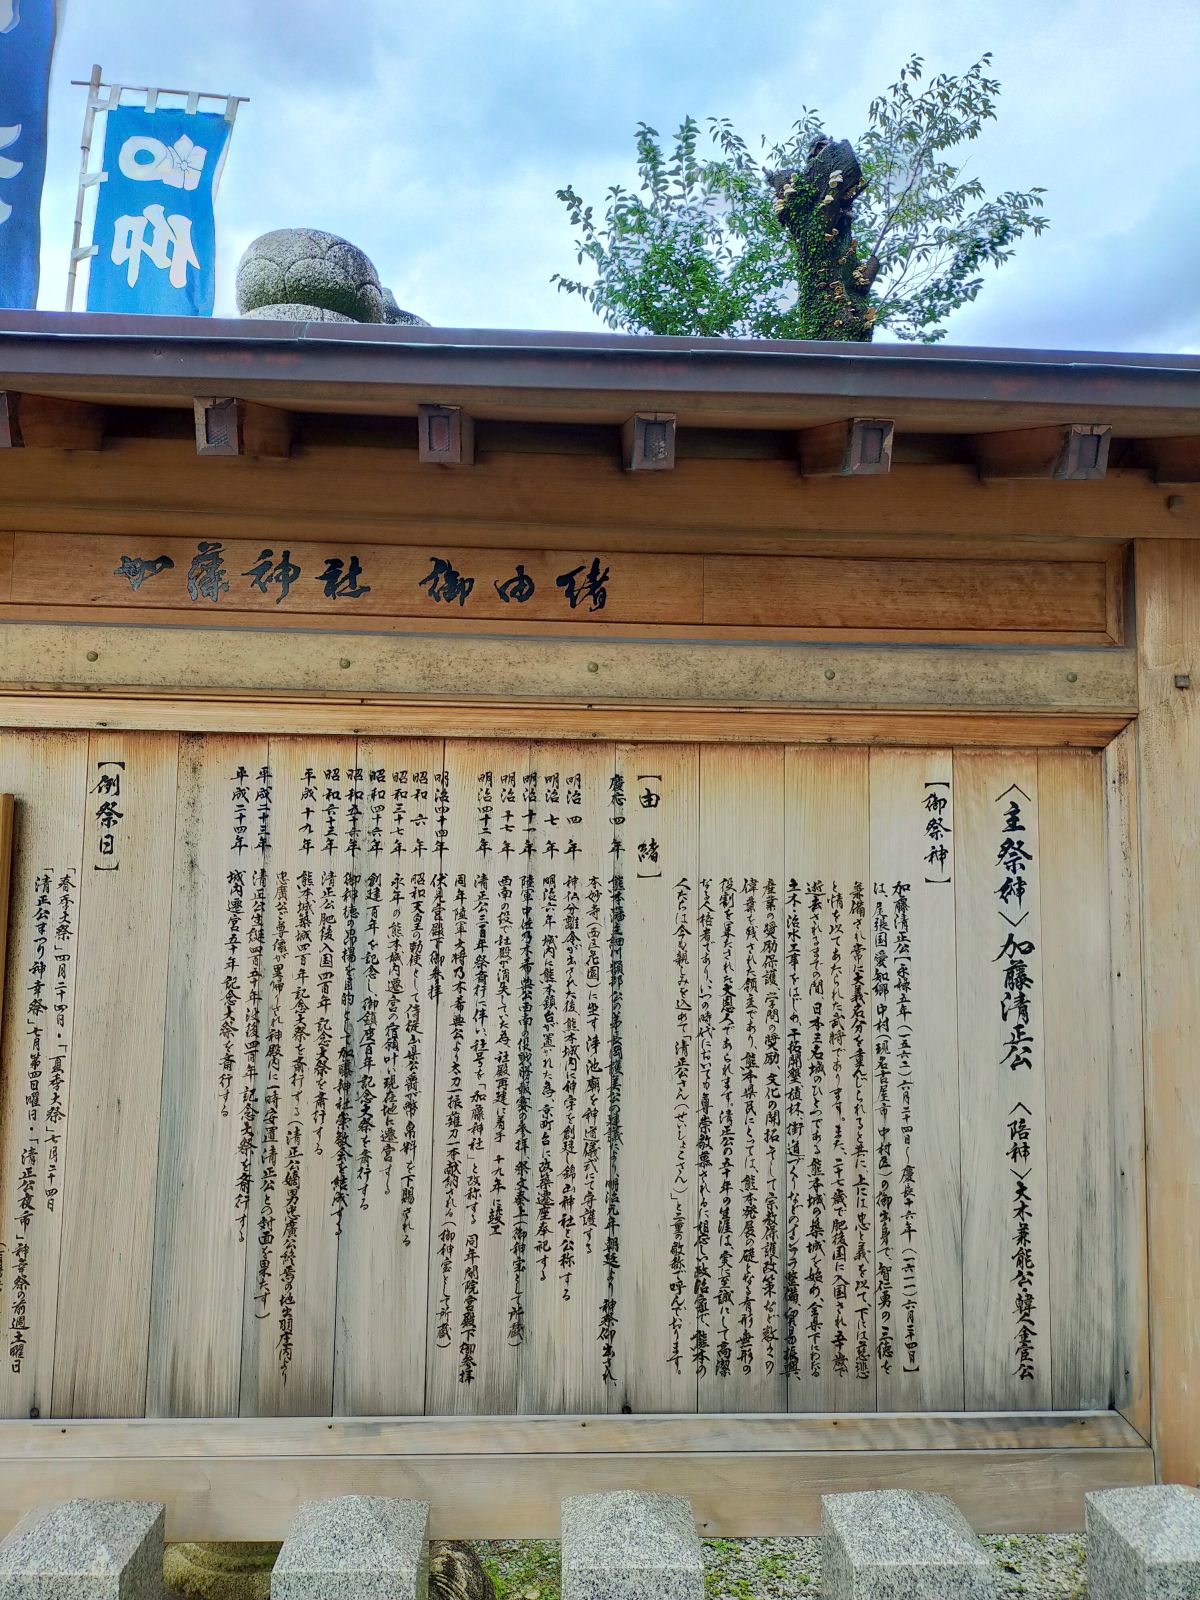 加藤神社 御由緒
〈主祭紳〉加藤清正公 〈陪神〉大木兼能公・韓人金宦公
【御祭神】
加藤清正公【永祿五年(一五六二)六月二十四日〜慶長十六年(一六一一)六月二十四日】
は、尾張国愛知郷中村(現名古屋市中村区)の御出身で、智仁勇の三徳を
兼備され常に大義名分を重んじられると共に、上には忠と義を以て、下には慈悲
と情を以てあたられた武将であります。また、二十七歳で肥後国に入国され五十歳で
逝去されるまでの間、日本三名城のひとつである熊本城の築城を始め、全県下にわたる
土木・治水工事をはじめ、干拓開墾、植林、街道づくりなどのインフラ整備、貿易振興、
産業の奨励保護、学問の奨励、文化の開拓そして宗教保護政策など数々の
偉業を残された領主であり、熊本県民にとっては、熊本発展の礎となる有形無形の
役割を果たされた大恩人であられます。清正公の五十年の生涯は、実に至誠にして高潔
なる人格者であり、いつの時代においても尊崇敬慕されるに相応しい政治家で、熊本の
人たちは今も親しみを込めて「清正公さん(せいしょこさん)」と二重の敬称で呼んでおります。
【由緒】
慶応四年 熊本藩主細川韶邦公の弟長岡護美公の建議により明治元年朝廷より神祭仰出され、
本妙寺(西区花園)に坐す浄池廟を神道儀式にて守護する
明治四年 神仏分離令が出された後、熊本城内に神宇を創建し錦山神社と公称する
明治七年 明治六年城内に熊本鎮台が置かれた為、京町台に改築遷座奉祀する
明治十一年 陸軍中佐乃木希典公西南の役戦勝報賽の参拝、祭文奏上(御神宝として所蔵)
明治十七年 西南の役で社殿が消失していた為、社殿再建に着手 十九年に竣工
明治四十二年 清正公三百年祭斎行に伴い、社号を「加藤神社」と改称する 同年閑院宮殿下御参拝
同年陸軍大将乃木希典公より太刀一振薙刀一本献納される(御神宝として所蔵)
明治四十四年 伏見宮殿下御参拝
昭和六年 昭和天皇の勅使として侍従山県公爵が幣帛料を下賜される
昭和三十七年 永年の熊本城内遷宮の宿願叶い、現在地に遷宮する
昭和四十六年 創建百年を記念し、御鎮座百年記念大祭を斎行する
昭和五十六年 御神徳の昂揚を目的として加藤神社崇敬会を結成する
昭和六十三年 清正公肥後入国四百年記念大祭を斎行する
平成十九年 熊本城築城四百年記念大祭を斎行する(清正公嫡男忠廣公終焉の地出羽庄内より
忠廣公ご尊像が里帰りされ神殿内に一時安置、清正公との対面を果たす)
平成二十三年 清正公生誕四百五十年没後四百年記念大祭を斎行する
平成二十四年 城内遷宮五十年記念大祭を斎行する
【例祭日】
「春季大祭」四月二十四日・「夏季大祭」七月二十四日
「清正公まつり神幸祭」七月第四日曜日・「清正公夜市」神幸祭の前週土曜日
加
御